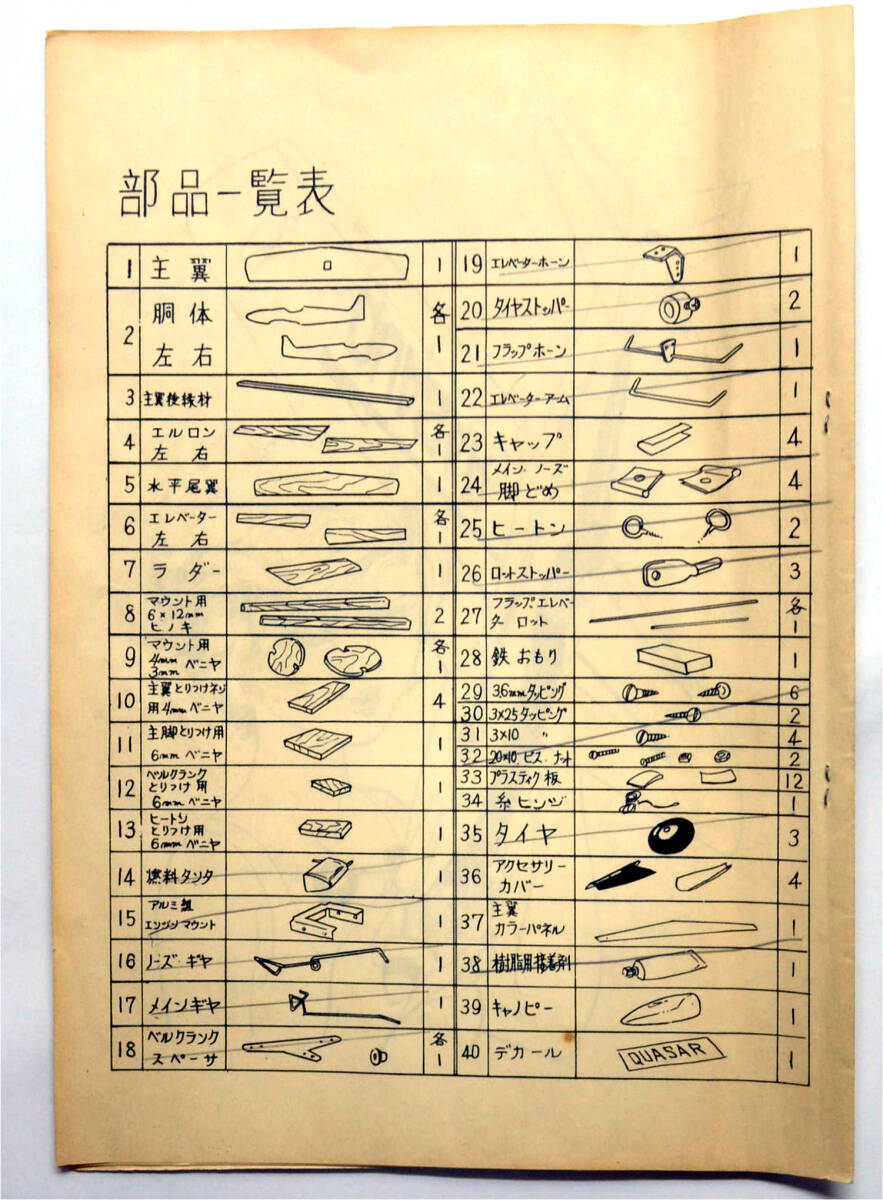 部品一覧表
1 主翼 1
2 胴体 左右 各1
3 主翼後縁材 1
4 エルロン 左右 各1
5 水平尾翼 1
6 エレベーター 左右 各1
7 ラダー 1
8 マウント用 6×12mm ヒノキ 2
9 マウント用 4mm 3mm ベニヤ 各1
10 主翼とりつけネジ用4mmベニヤ 4
11 主脚とりつけ用 6mmベニヤ 1
12 ベルクランクとりつけ用 6mmベニヤ 1
13 ヒートンとりつけ用 6mmベニヤ 1
14 燃料タンク 1
15 アルミ製 エンジンマウント 1
16 ノーズ・ギヤ 1
17 メインギヤ 1
18 ベルクランク スペーサ 各1
19 エレベーターホーン 1
20 タイヤストッパー 2
21 フラップホーン 1
22 エレベーターアーム 1
23 キャップ 4
24 メイン・ノーズ 脚どめ 4
25 ヒートン 2
26 ロットストッパー 3
27 フラップエレベーター ロット 各1
28 鉄おもり 1
29 3.6mmタッピング 6
30 3×25タッピング 2
31 3×10 〃 4
32 20×10ビス・ナット 2
33 プラスティク板 12
34 糸ヒンジ 1
35 タイヤ 3
36 アクセサリーカバー 4
37 主翼 カラーパネル 1
38 樹脂用接着剤 1
39 キャノピー 1
40 デカール QUASAR 1